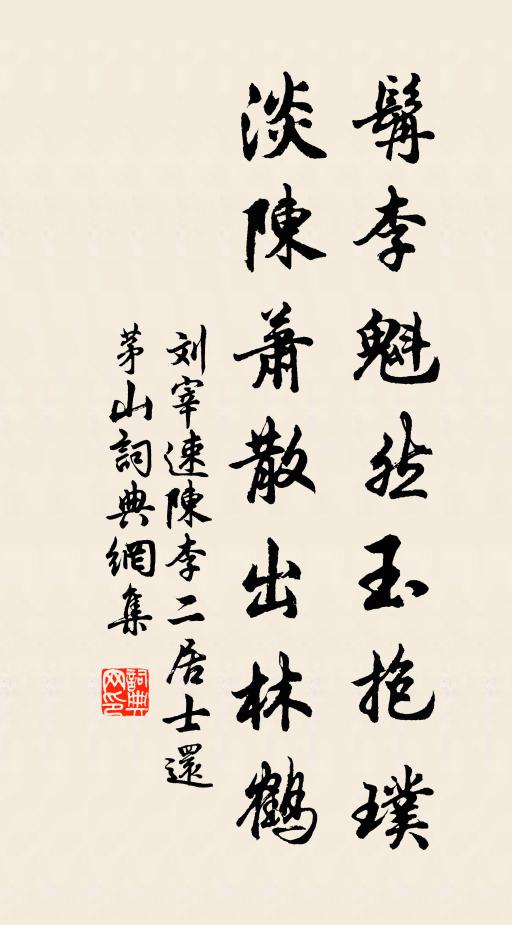 髯李魁然玉抱璞
淡陳蕭散出林鶴
刘宰速陳李二居士還
茅山詞典網集
詞典网印